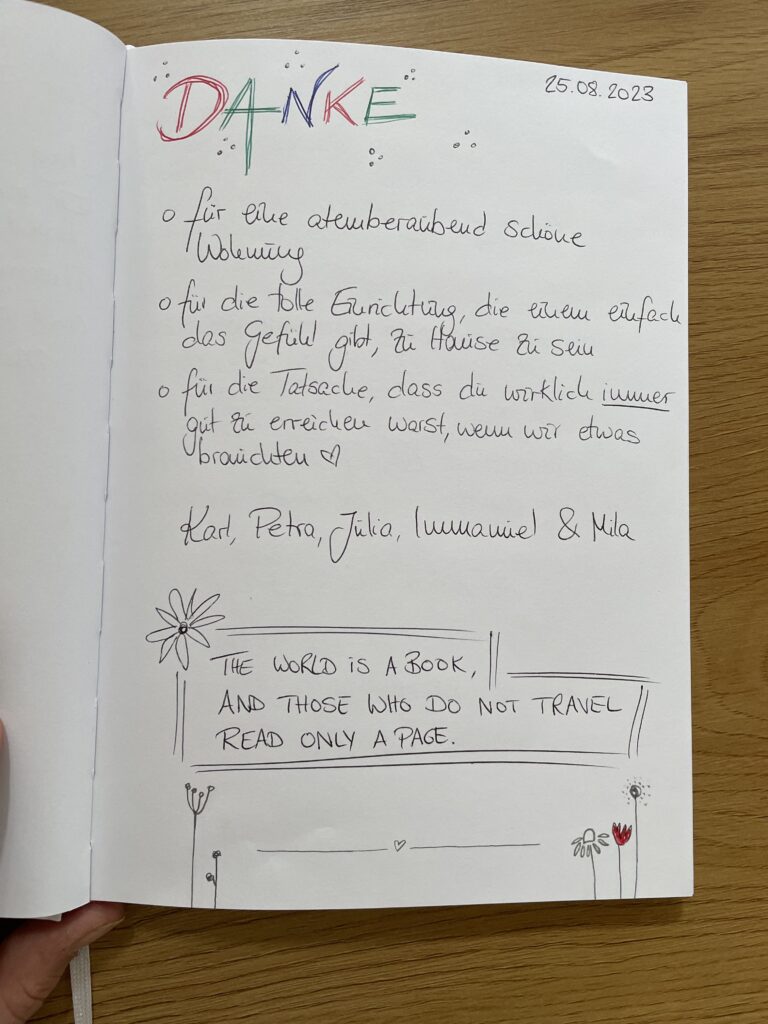 DANKE
25.08.2023
o für eine atemberaubend schöne
Wohnung
o für die tolle Einrichtung, die einem einfach
das Gefühl gibt, zu Hause zu sein
o für die Tatsache, dass du wirklich immer
gut zu erreichen warst, wenn wir etwas
brauchten ♡
Karl, Petra, Julia, Immanuel & Mila
THE WORLD IS A BOOK,
AND THOSE WHO DO NOT TRAVEL
READ ONLY A PAGE.